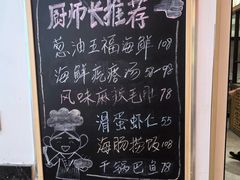 厨师长推荐
葱油五福海鲜108
海鲜疙瘩汤58-98
风味麻辣毛肚78
滑蛋虾仁55
海肠捞饭108
干锅巴鱼78